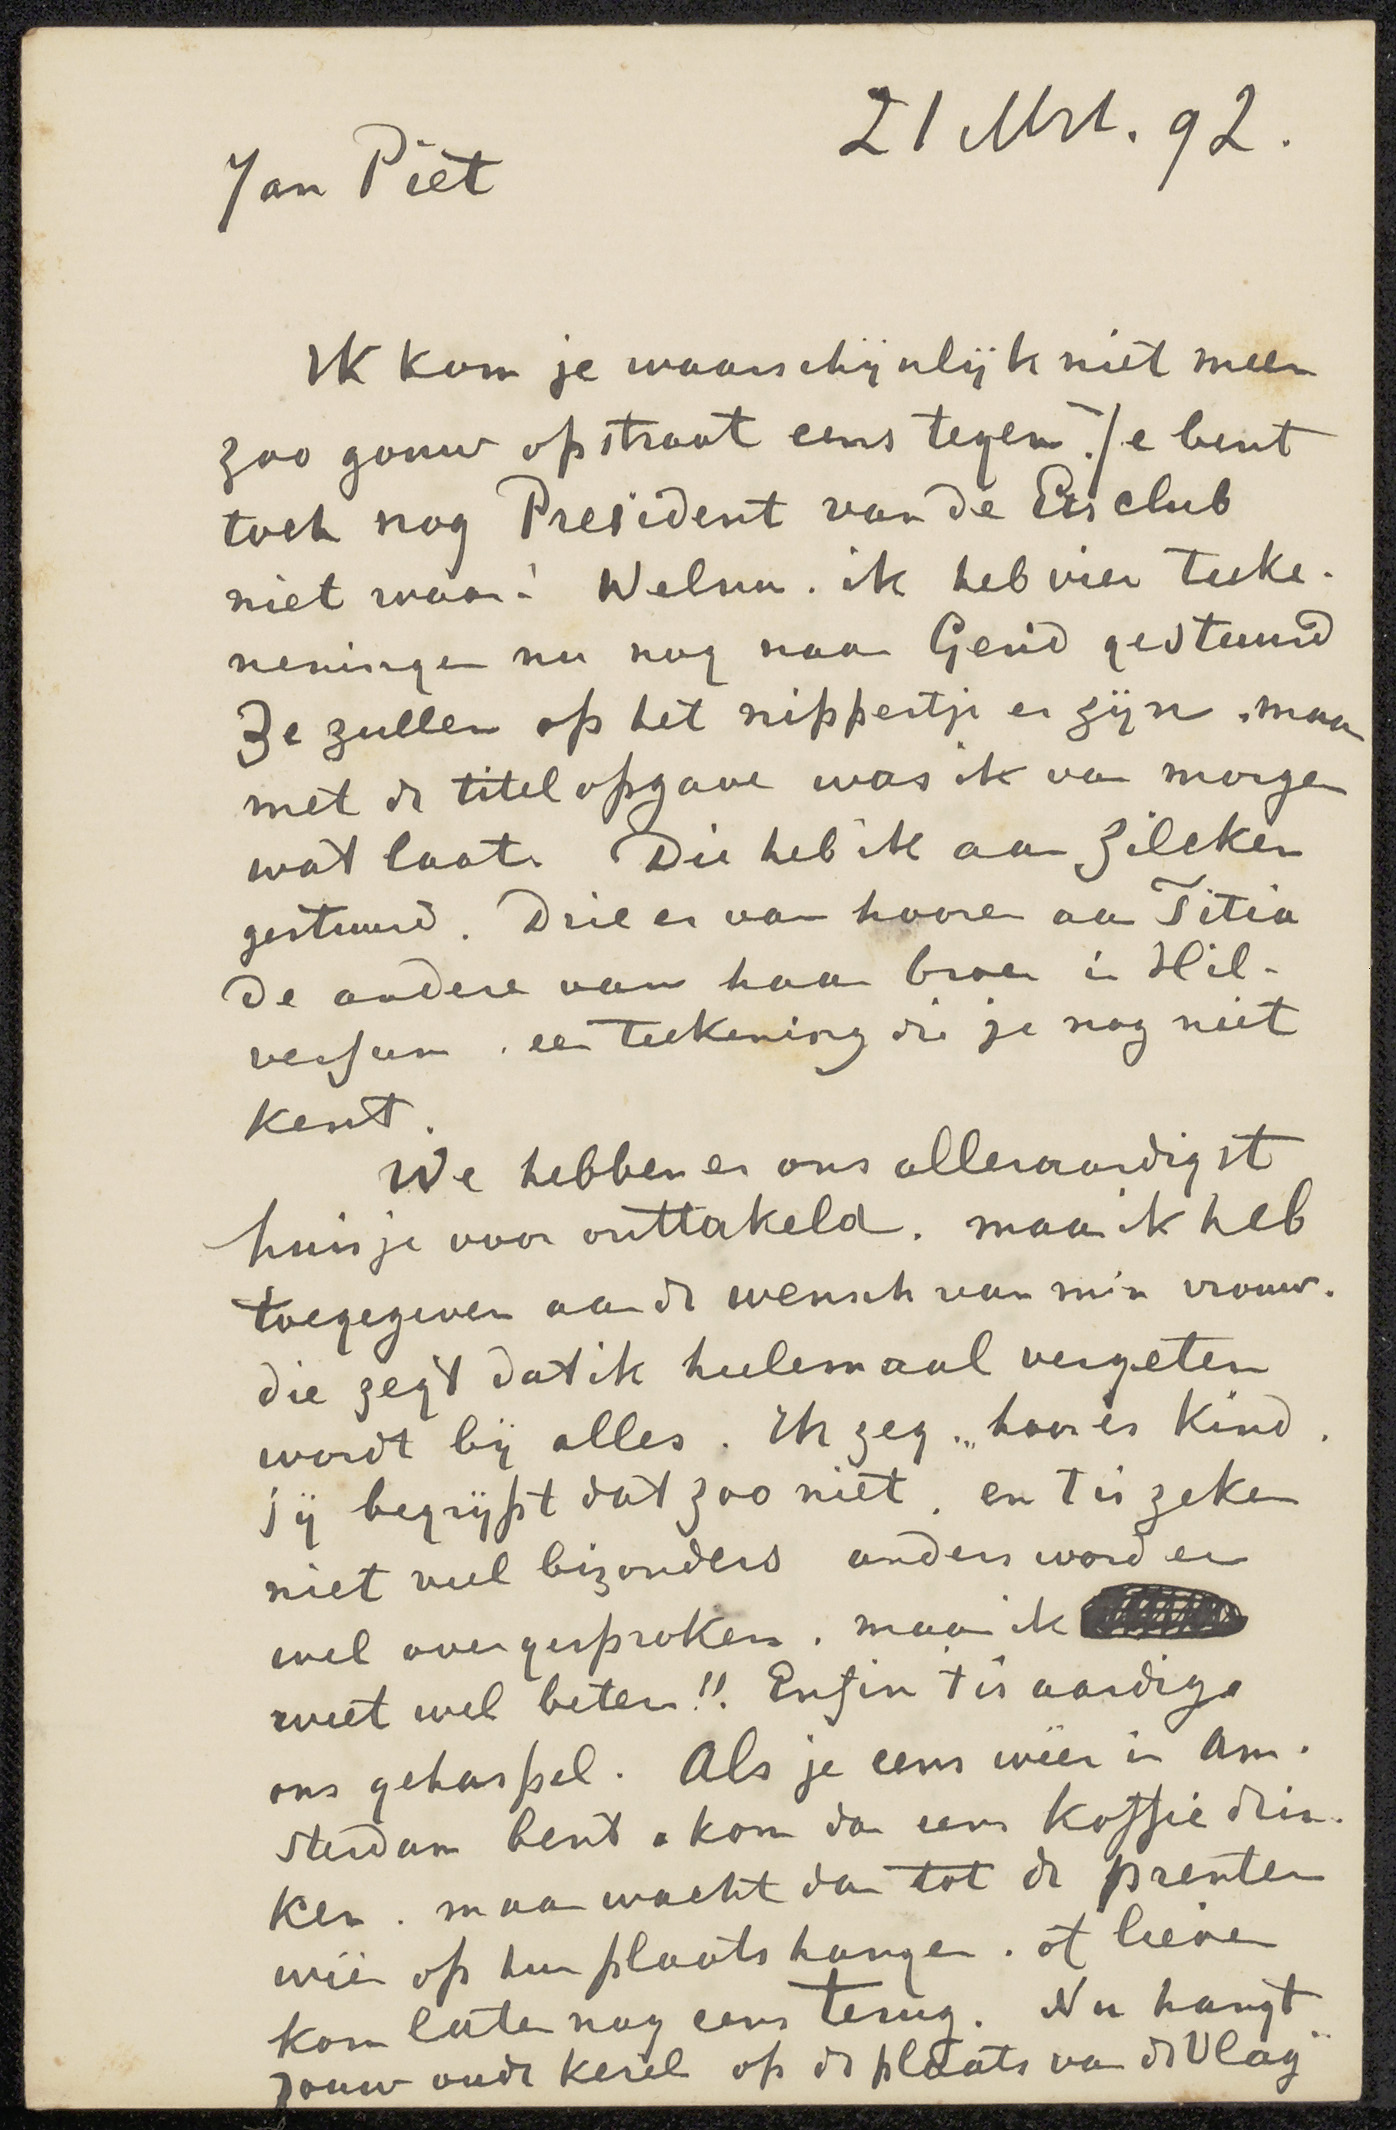 21 Mrt. 92.
Jan Piet
Ik kom je waarschijnlijk niet meer
zoo gouw op straat eens tegen. Je bent
toch nog President van de Etsclub
niet waar! Welnu. ik heb vier teeke-
neningen nu nog naar Gend gestuurd
Ze zullen op het nippertje er zijn. maar
met de titelopgave was ik van morgen
wat laat. Die heb ik aan Zilcken
gestuurd. Drie er van hooren aan Titia
De andere van haar broer in Hil-
versum. een teekening die je nog niet
kent.
We hebben er ons alleraardigst
huisje voor onttakeld. maar ik heb
toegegeven aan de wensch van min vrouw.
die zegt dat ik heelemaal vergeten
wordt bij alles. Ik zeg „hoor is kind.
jij begrijpt dat zoo niet. en t is zeker
niet veel bizonders anders word er
wel over gesproken. maar ik
weet wel beter!! Enfin t is aardig.
ons gehaspel. Als je eens wëer in Am-
sterdam bent. kom dan eens koffie drin-
ken. maar wacht dan tot de prenten
wëer op hun plaats hangen. of liever
kom later nog eens terug. Nu hangt
jouw oude kerel op de plaats van de Vlag"